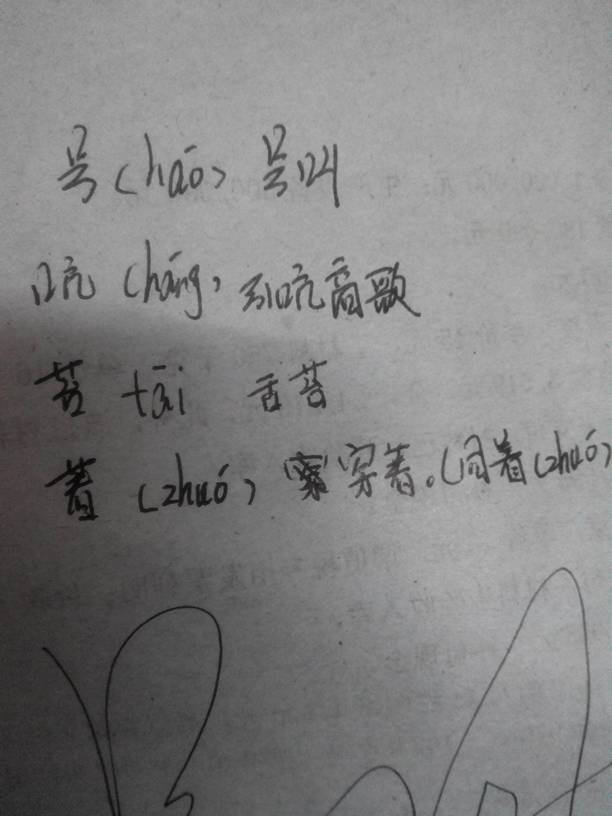 号(hāo) 号叫
吭(háng) 引吭高歌
苔 tāi 舌苔
著(zhuó) 穿著。(同着(zhuó)